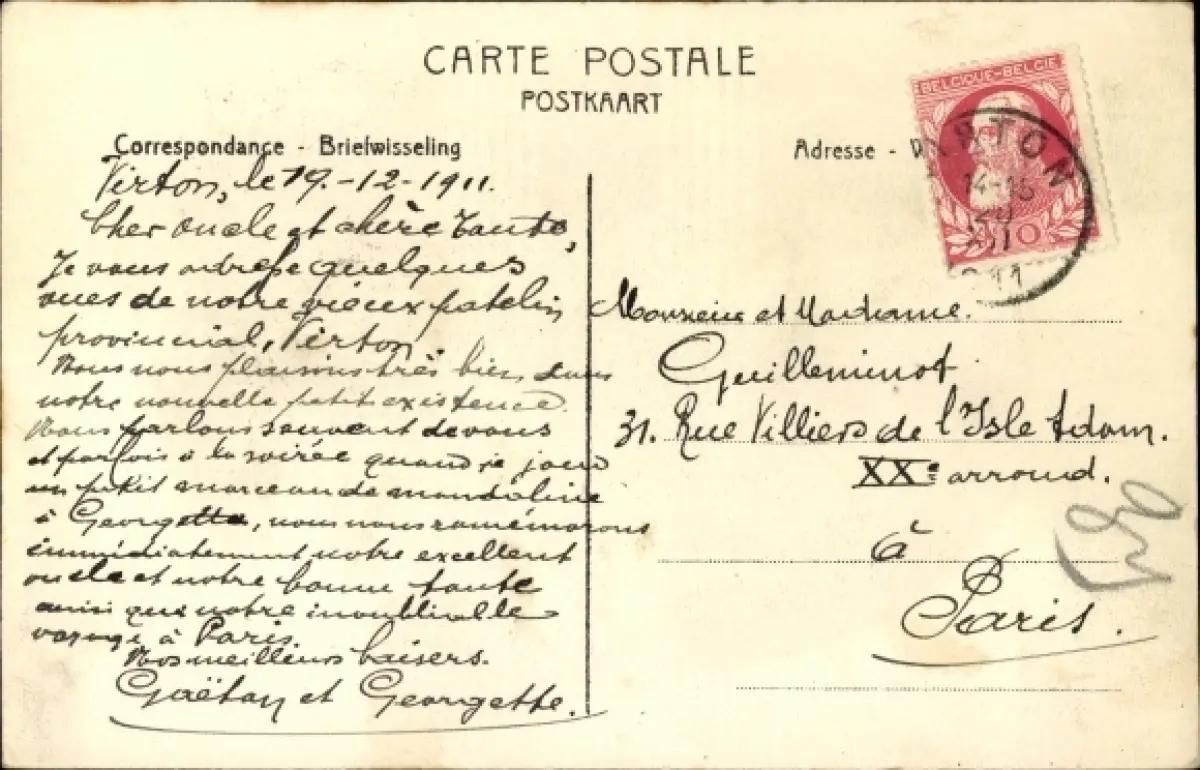 CARTE POSTALE
POSTKAART
Correspondance - Briefwisseling
Virton, le 19.-12-1911.
Cher Oncle et chère Tante,
Je vous adresse quelques
vues de notre vieux patelin
provincial, Virton.
Nous nous plaisons très bien dans
notre nouvelle petit existence.
Nous parlons souvent de vous
et parfois à la soirée quand je joue
un petit morceau de mandoline
à Georgette, nous nous remémorons
immédiatement notre excellent
oncle et notre bonne tante
ainsi que notre inoubliable
voyage à Paris.
Nos meilleurs baisers.
Gaëtan et Georgette.
Adresse -
BELGIQUE-BELGIE
10
VIRTON
14-15
1911
Monsieur et Madame.
Guilleminot
31. Rue Villiers de l'Isle Adam.
XXe arrond.
à
Paris.